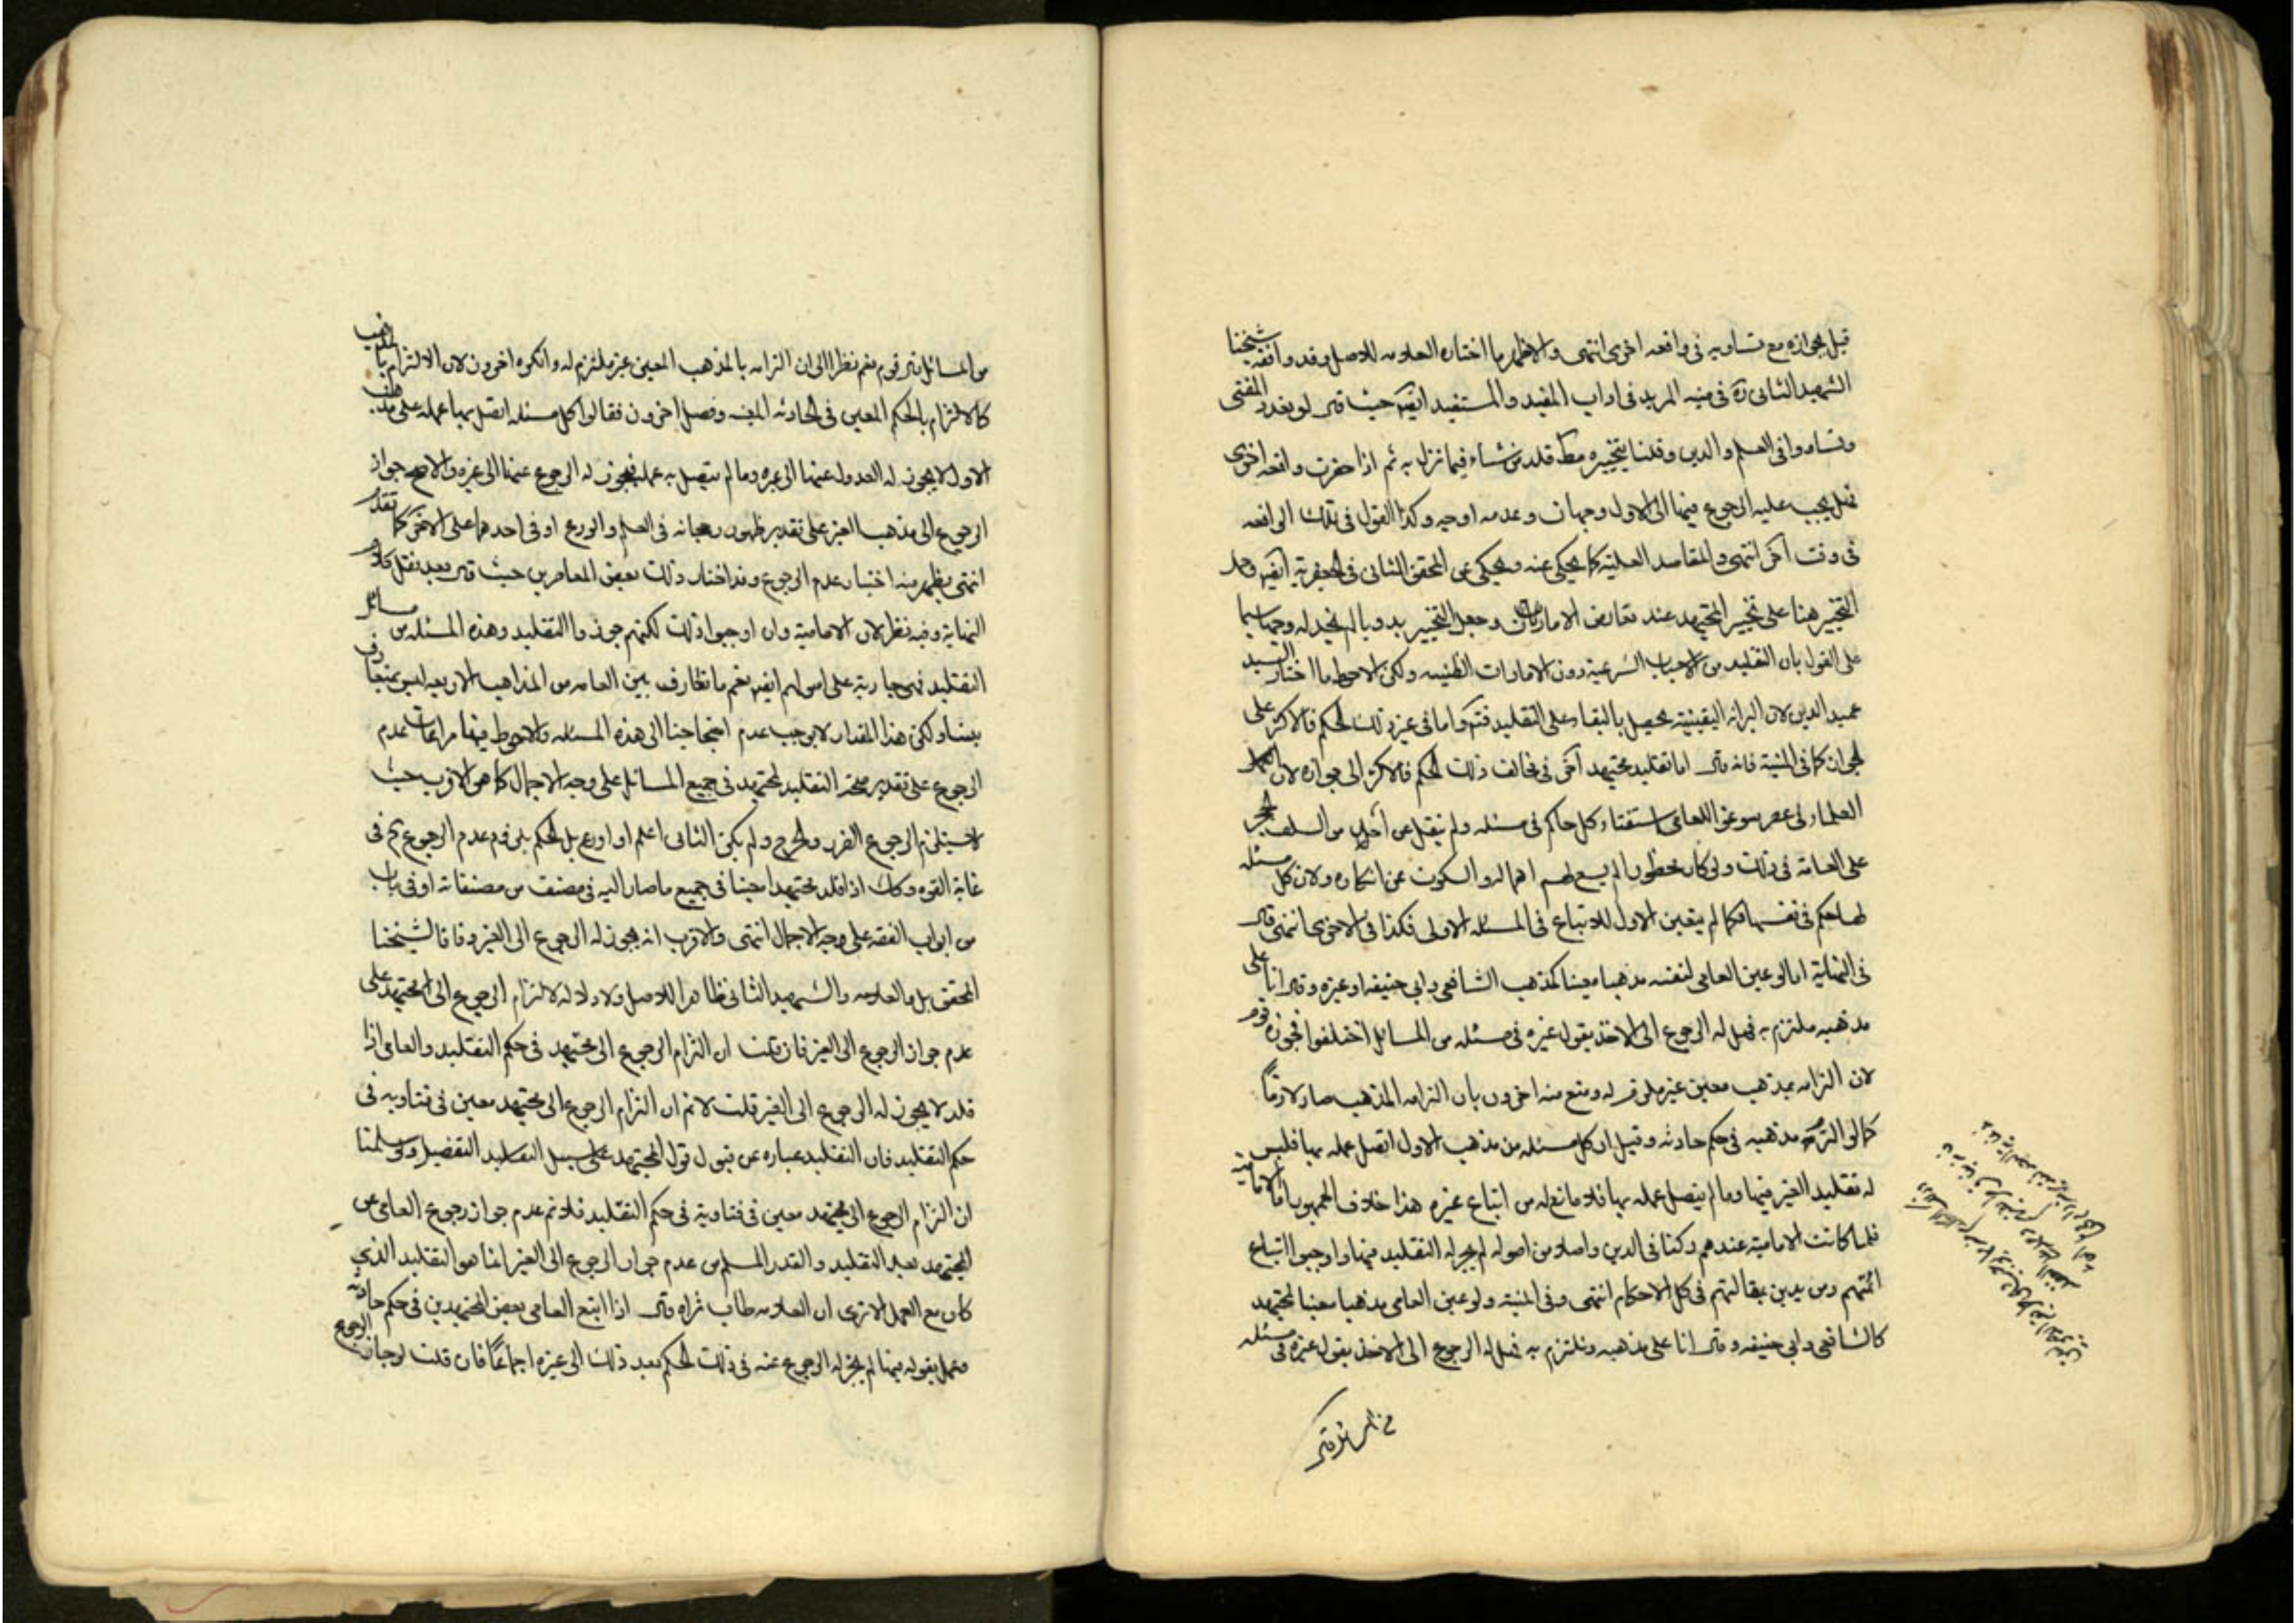 قيل بجوازه مع تساويه فى واقعه اخرى انتهى والاظهر ما اختاره العلامه للاصل وقد وافقه شيخنا
الشهيد الثانى ره فى منيه المريد فى اداب المفيد والمستفيد ايضا حيث قال لو تعدد المفتى
وتساووا فى العلم والدين وقلنا بتخييره مط قلد من شاء فيما نزل به ثم اذا حضرت واقعه اخرى
فهل يجب عليه الرجوع فيها الى الاول وجهان وعدمه اوجه وكذا القول فى تلك الواقعه
فى وقت آخر انتهى والمقاصد العلية كما يحكى عنه ويحكى عن المحقق الثانى فى الجعفرية ايضا وحمل
التخيير هنا على تخيير المجتهد عند تعارض الامارتين وجعل التخيير بدويا لم نجد له وجها سيما
على القول بان التقليد من الاسباب الشرعية دون الامارات الظنيه ولكن الاحوط ما اختار السيد
عميد الدين لان البرائه اليقينية يحصل بالبقاء على التقليد فتم واما فى غير ذلك الحكم فالاكثر على
الجواز كما فى المنية فانه قال اما تقليد مجتهد آخر فى مخالف ذلك الحكم فالاكثر الى جوازه لان
العلماء فى عصر سوغوا للعامى استفتاء كل حاكم فى مسئله ولم ينقل عن احد من السلف الحجر
على العامة فى ذلك ولو كان محظورا لم يسع لهم اهماله والسكوت عن انكاره ولان كل مسئله
لها حكم فى نفسها فكما لم يتعين الاول للاتباع فى المسئله الاولى فكذا فى الاخرى انتهى قال
فى النهاية اما لو عين العامى لنفسه مذهبا معينا كمذهب الشافعى وابى حنيفه او غيره وقال انا على
مذهبه ملتزم به فهل له الرجوع الى الاخذ بقول غيره فى مسئله من المسائل اختلفوا فجوزه قوم
لان التزامه بمذهب معين غير ملزم له ومنع منه اخرون بان التزامه المذهب صار لازما
كما لو التزم مذهبه فى حكم حادثه وقيل ان كل مسئله من مذهب الاول اتصل عمله بها فليس
له تقليد الغير فيها وما لم يتصل عمله بها فلا مانع له من اتباع غيره هذا خلاف الجمهور اما الامامية
فلما كانت الامامية عندهم ركنا فى الدين واصلا من اصوله لم يجز له التقليد فيها واوجبوا اتباع
ائمتهم ومن يدين بمقالتهم فى كل الاحكام انتهى وفى المنية ولو عين العامى مذهبا معينا لمجتهد
كالشافعى وابى حنيفه وقال انا على مذهبه وملتزم به فهل له الرجوع الى الاخذ بقول غيره فى مسئله
من المسائل قال قوم نعم نظرا الى ان التزامه بالمذهب المعين غير ملتزم له وانكره اخرون لان الالتزام بالمذهب
كالالتزام بالحكم المعين فى الحادثه المعينه وفصل اخرون فقالوا كل مسئله اتصل بها عمله على مذهب
الاول لا يجوز له العدول عنها الى غيره وما لم يتصل به عمله فيجوز له الرجوع عنها الى غيره والاصح جواز
الرجوع الى مذهب الغير على تقدير ظهور رجحانه فى العلم والورع او فى احدهما على الاخر كما تقدم
انتهى يظهر منه اختيار عدم الرجوع وقد اختار ذلك بعض المعاصرين حيث قال بعد نقل كلام
النهاية وفيه نظر لان الامامية وان اوجبوا ذلك لكنهم جوزوا التقليد وهذه المسئله من مسائل
التقليد فهى جارية على اصولهم ايضا نعم ما تعارف بين العامه من المذاهب الاربعه ليس متعارف
بيننا ولكن هذا المقدار لا يوجب عدم احتجاجنا الى هذه المسئله والاحوط فيها مراعات عدم
الرجوع على تقدير صحة التقليد لمجتهد فى جميع المسائل على وجه الاجمال كما هو الاقرب حيث
لا يستلزم الرجوع الضرر والحرج ولم يكن الثانى اعلم او اورع بل الحكم بلزوم عدم الرجوع ح فى
غاية القوه وكذا اذا قلد مجتهدا حينا فى جميع ما صار اليه فى مصنف من مصنفاته او فى باب
من ابواب الفقه على وجه الاجمال انتهى والاقرب انه يجوز له الرجوع الى الغير وفاقا لشيخنا
المحقق بل والعلامه والشهيد الثانى ظاهرا للاصل ولا دلاله لالتزام الرجوع الى المجتهد على
عدم جواز الرجوع الى الغير فان قلت ان التزام الرجوع الى مجتهد فى حكم التقليد والعامى اذا
قلد لا يجوز له الرجوع الى الغير قلت لا نم ان التزام الرجوع الى مجتهد معين فى فتاويه فى
حكم التقليد فان التقليد عباره عن قبول قول المجتهد على سبيل التقليد التفصيل ولو سلمنا
ان التزام الرجوع الى مجتهد معين فى فتاويه فى حكم التقليد فلا نم عدم جواز رجوع العامى عن
المجتهد بعد التقليد والقدر المسلم من عدم جواز الرجوع الى الغير انما هو التقليد الذى
كان مع العمل الا ترى ان العلامه طاب ثراه قال اذا اتبع العامى بعض المجتهدين فى حكم حادثه
وعمل بقوله فيها لم يجز له الرجوع عنه فى ذلك الحكم بعد ذلك الى غيره اجماعا فان قلت لو جاز الرجوع